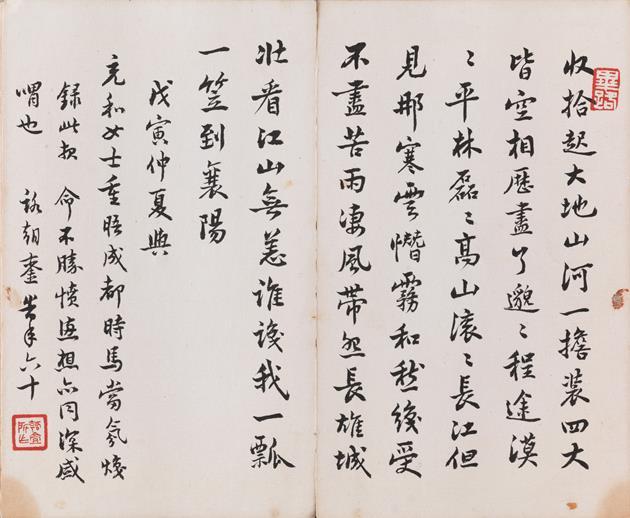 收拾起大地山河一擔裝四大
皆空相歷盡了邈〻程途漠
〻平林磊〻高山滾〻長江但
見那寒雲憯霧和愁織受
不盡苦雨凄風帶怨長雄城
壯看江山無恙誰識我一瓢
一笠到襄陽
戊寅仲夏與
充和女士重晤成都時馬當氛熾
錄此報 命不勝憤恧想亦同深感
喟也 路朝鑾 時年六十